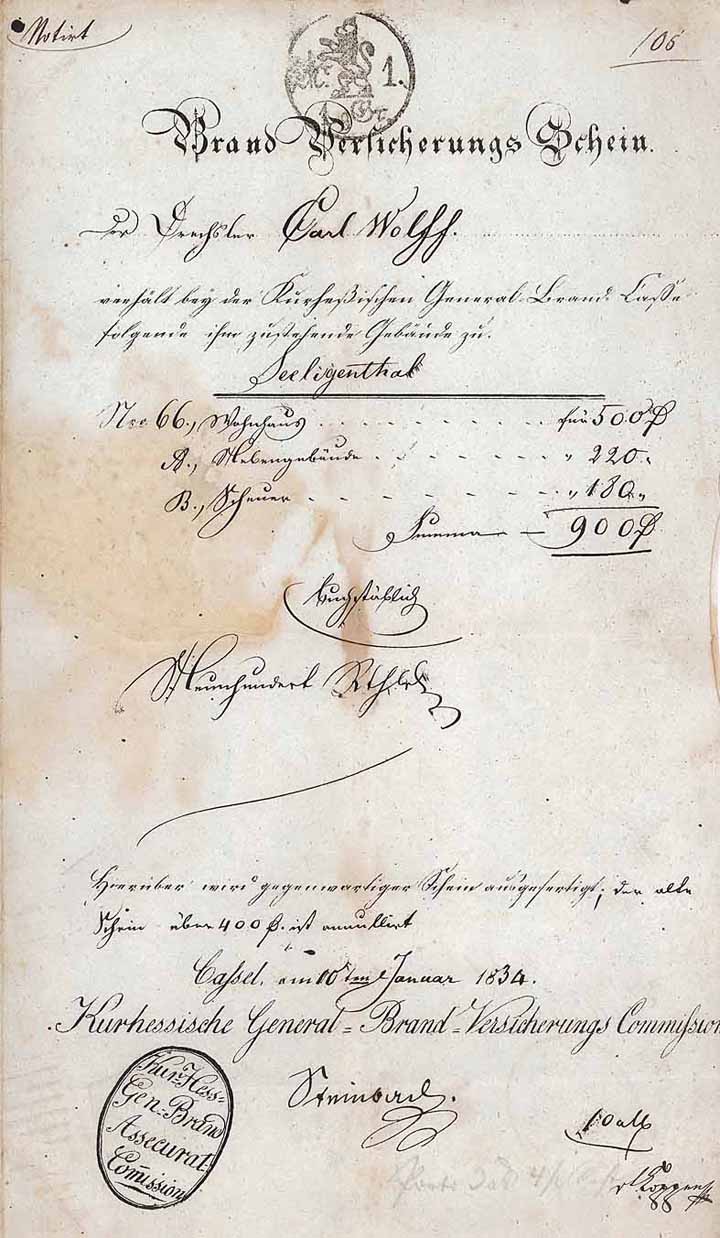 Notirt
106
1.
1 Gr.
Brand Versicherungs Schein.
Der Drechsler Carl Wolff.
erhält bey der Kurheßischen General-Brand-Casse
folgende ihm zustehende Gebäude zu.
Seeligenthal
Nro 66., Wohnhaus für 500
A., Nebengebäude " 220 "
B., Scheuer " 180 "
Summa — 900
buchstäblich
Neunhundert Rthlr
Hierüber wird gegenwärtiger Schein ausgefertigt; der alte
Schein über 400 ist annullirt
Cassel, am 10ten Januar 1834.
Kurhessische General-Brand-Versicherungs Commission
Kur-Hess-
Gen-Brand
Assecurat.
Comission
Steinbach.